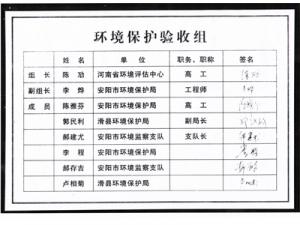 环境保护验收组
姓名 单位 职务、职称 签名
组长 陈功 河南省环境评估中心 高工
副组长 李烨 安阳市环境保护局 工程师
成员 陈雅芬 安阳市环境保护局 高工
郭民利 滑县环境保护局 副局长
郝建尤 安阳市环境监察支队 支队长
李程 安阳市环境保护局
郝存吉 安阳市环境监察支队
卢相菊 滑县环境保护局